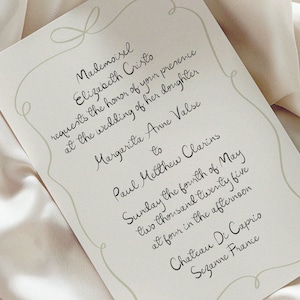 Mademoisel
Elizabeth Cristo
requests the honor of your presence
at the wedding of her daughter
Margarita Anne Valse
to
Paul Matthew Clarins
Sunday the fourth of May
two thousand twenty five
at four in the afternoon
Chateau Di Caprio
Sezanne France